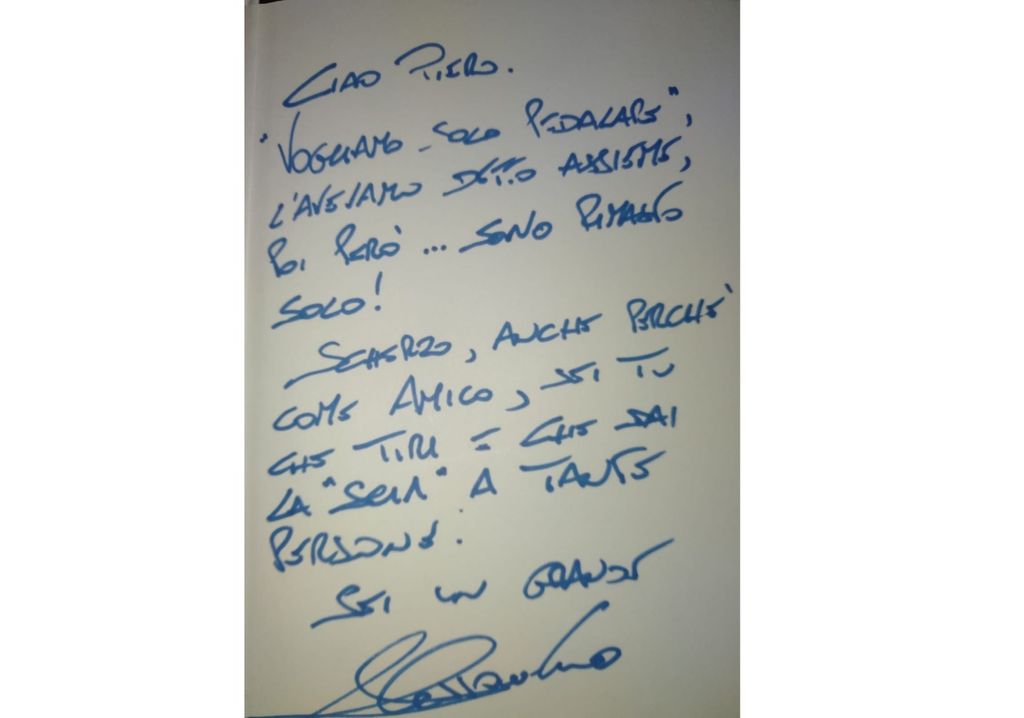 CIAO PIERO.
"VOGLIAMO SOLO PEDALARE",
L'AVEVAMO DETTO ASSIEME,
POI PERÒ ... SONO RIMASTO
SOLO!
SCHERZO, ANCHE PERCHÈ
COME AMICO, SEI TU
CHE TIRI E CHE DAI
LA "SCIA" A TANTE
PERSONE.
SEI UN GRANDE